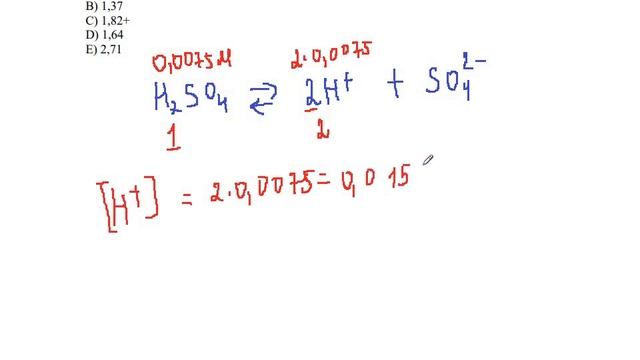 B) 1,37
C) 1,82+
D) 1,64
E) 2,71
0,0075M 2·0,0075
H₂SO₄ ⇌ 2H⁺ + SO₄²⁻
1 2
[H⁺] = 2·0,0075=0,015